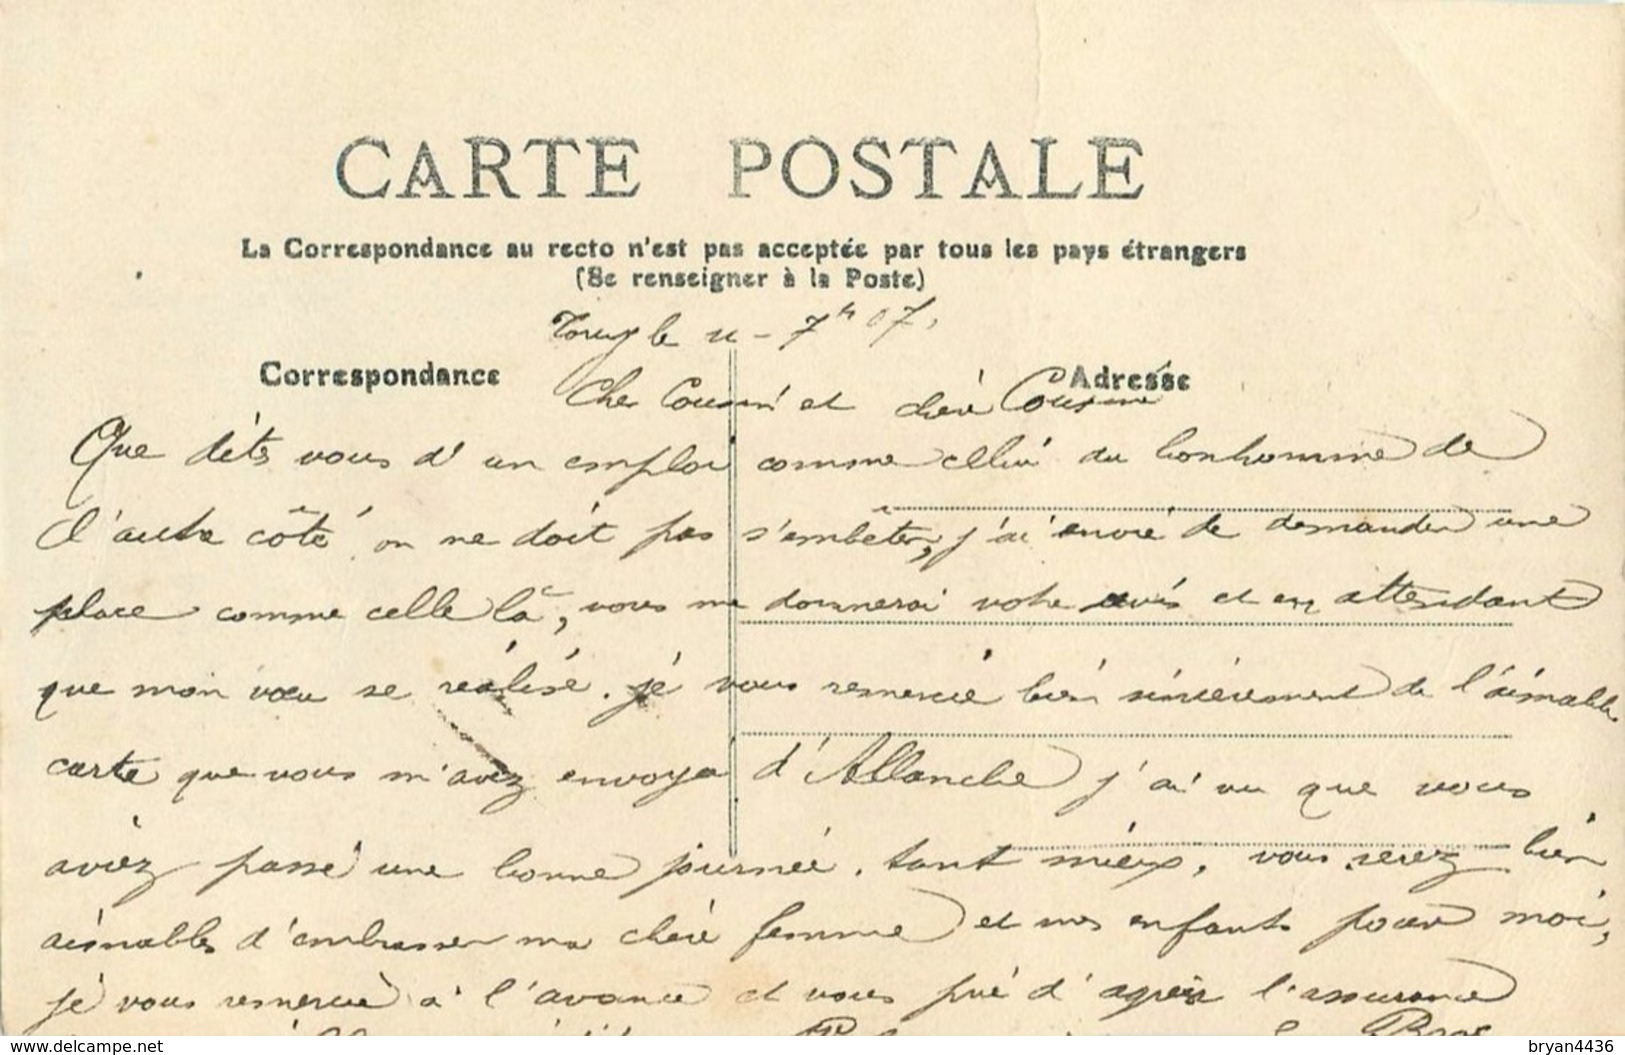 CARTE POSTALE
La Correspondance au recto n'est pas acceptée par tous les pays étrangers
(Se renseigner à la Poste)
le 11 - 7h 07,
Correspondance
Adresse
Cher Cousin et chère Cousine
Que dites vous d'un emploi comme cellui du bonhomme de
l'autre côté, on ne doit pas s'embêter, j'ai envie de demander une
place comme celle là, vous me donnerai votre avis et en attendant
que mon vœu se réalise. je vous remercie bien sincèrement de l'aimable
carte que vous m'avez envoyé d'Allanche j'ai vu que vous
aviez passé une bonne journée. tant mieux, vous serez bien
aimables d'embrasser ma chère femme et mes enfants pour moi,
je vous remercie à l'avance et vous prie d'agréer l'assurance
www.delcampe.net
bryan4436